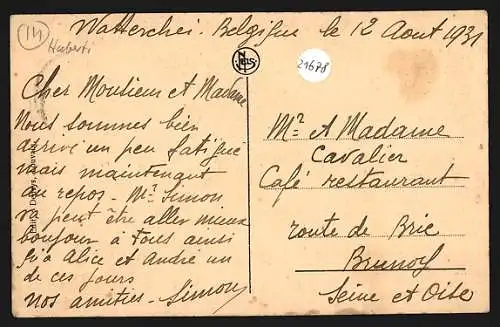 14
Huberti
Watterchei. Belgique le 12 Aout 1931
NELS
21678
Cher Monsieur et Madame
Nous sommes bien
arrivé un peu fatigué
mais maintenant
au repos. Mr Simon
va peut être aller mieux
bonjour à Tous ainsi
Alice et André un
de ces jours
nos amitiés. Simon
Mr et Madame
Cavalier
Café restaurant
route de Brie
Brunoy
Seine et Oise